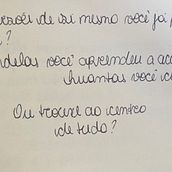 de si mesmo você já
?
delas você aprendeu a
Quantas você
Ou trouxe ao centro
de tudo?